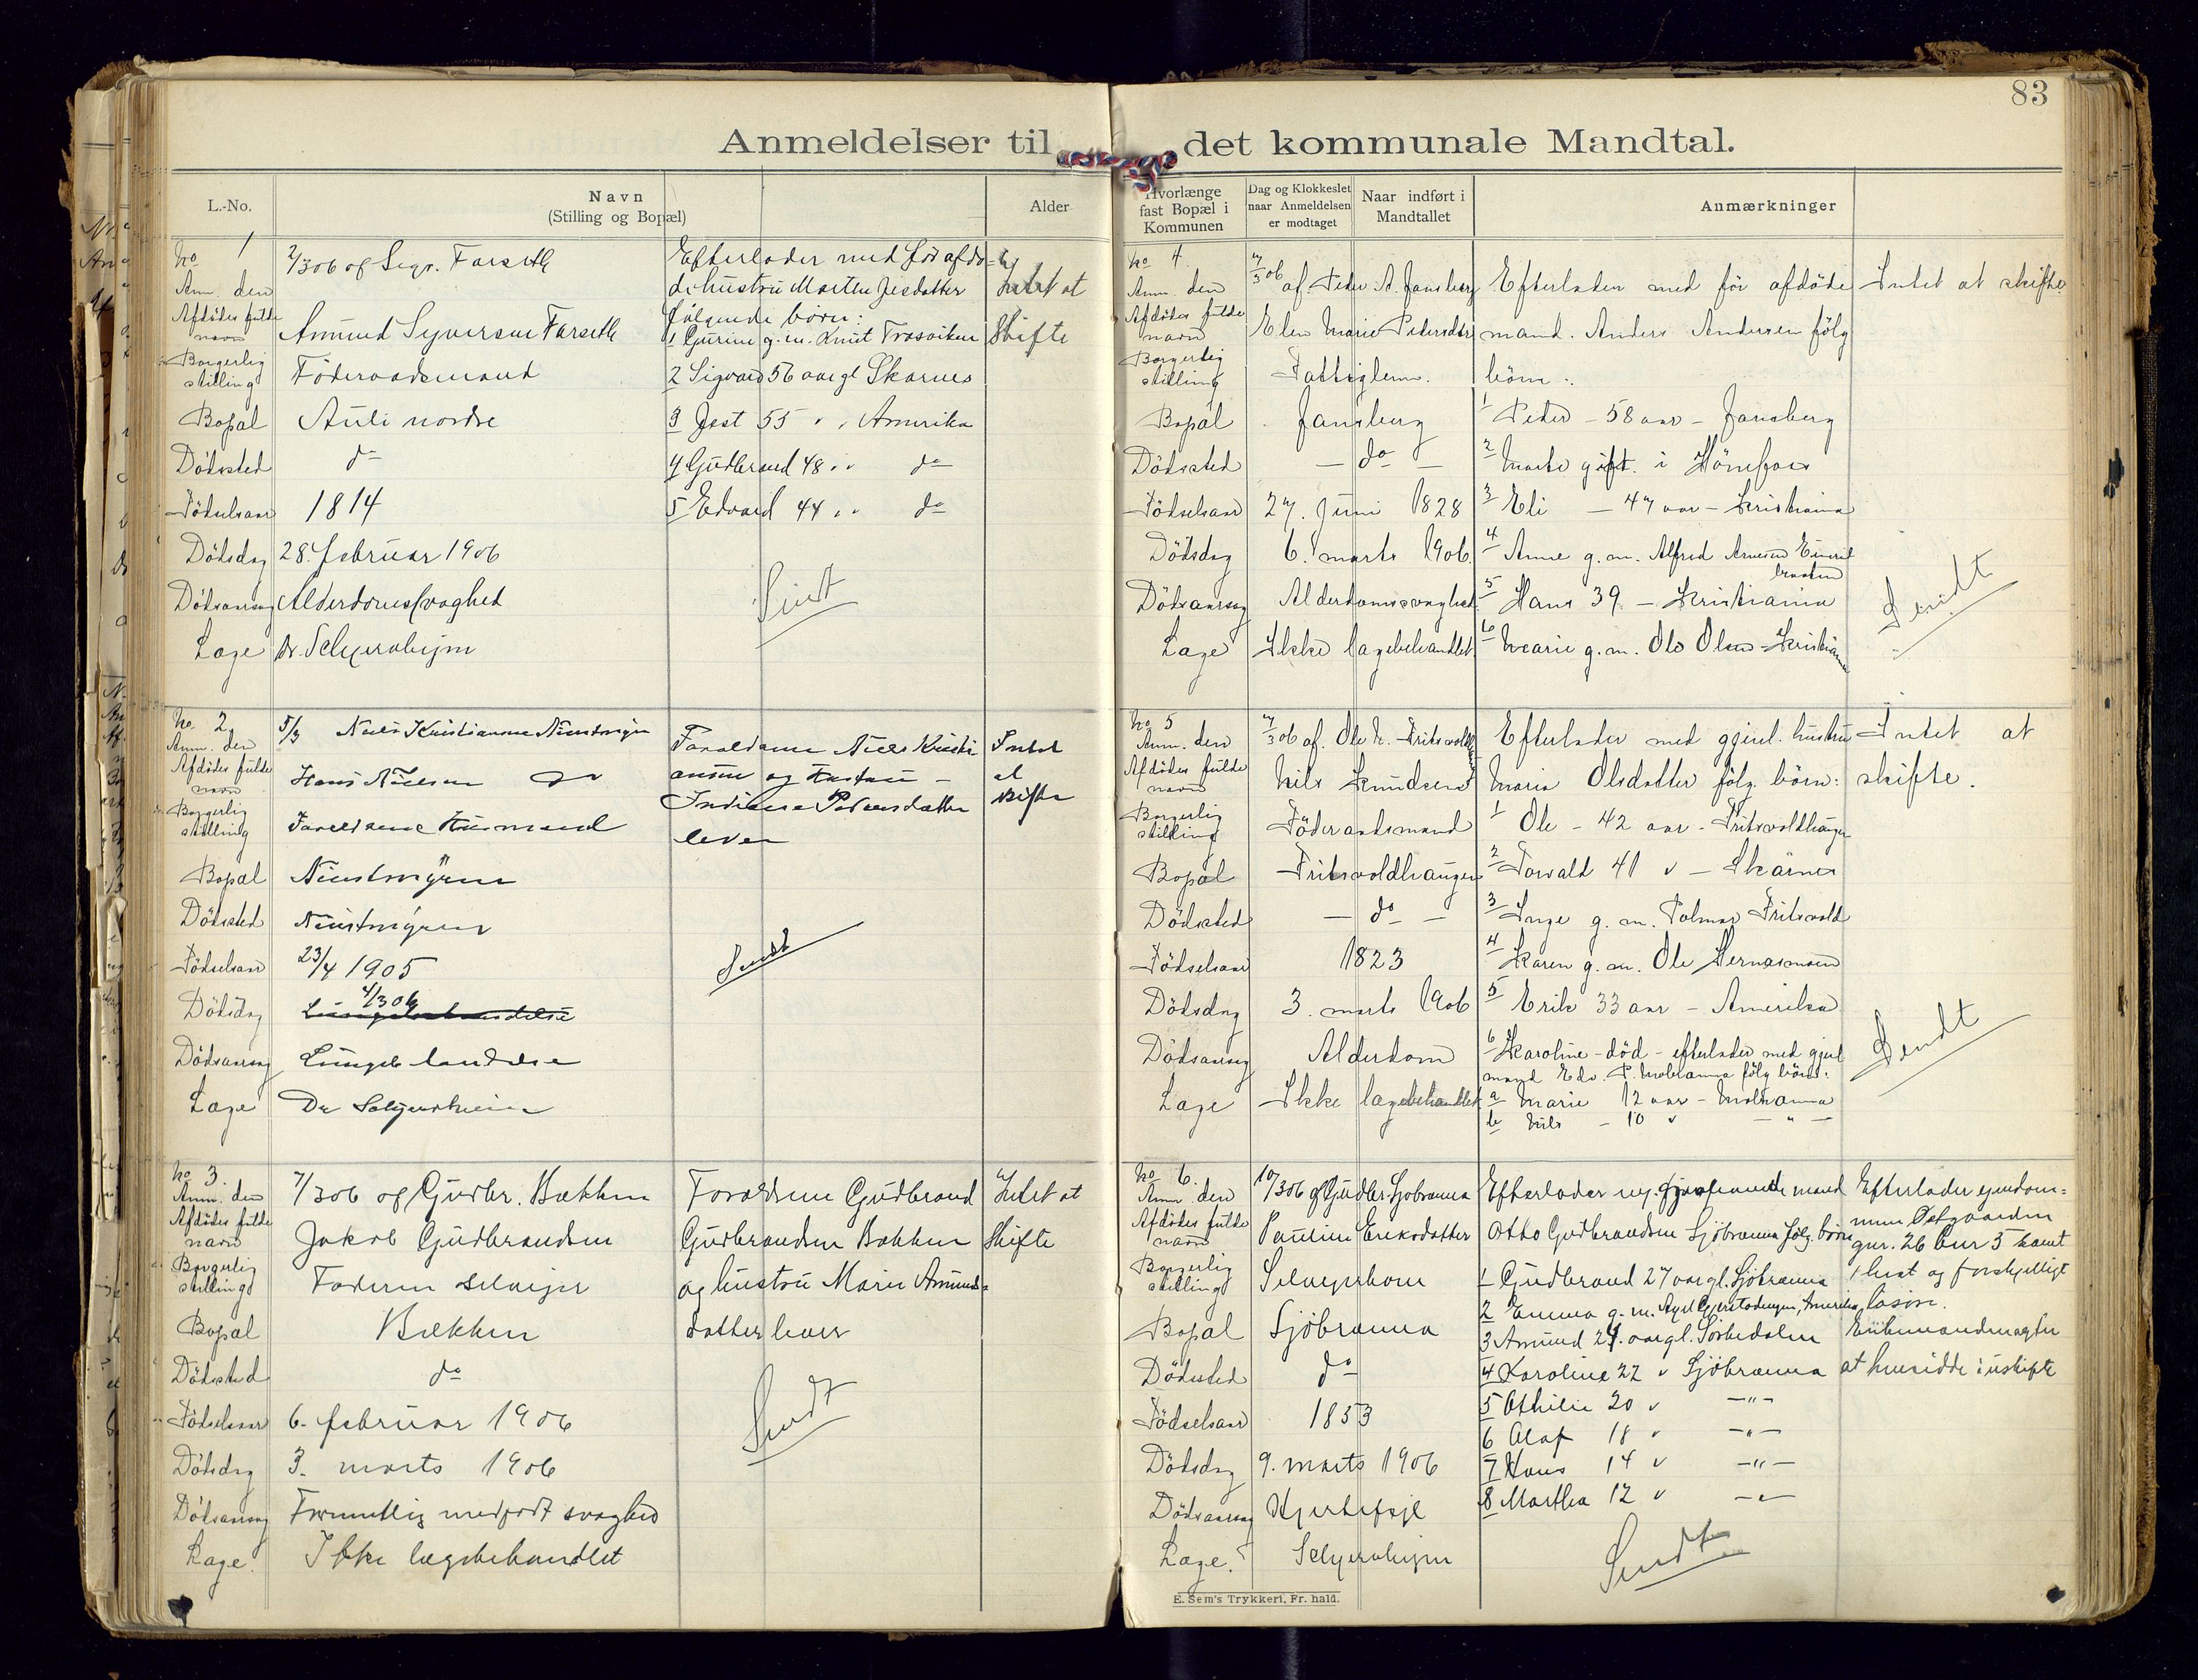 83
Anmeldelser til det kommunale Mandtal.
L.-No.
Navn
(Stilling og Bopæl)
Alder
Hvorlænge
fast Bopæl i
Kommunen
Dag og Klokkeslet
naar Anmeldelsen
er modtaget
Naar indført i
Mandtallet
Anmærkninger
No 1
Anm. den 2/3 06 af Sigv. Farseth
Afdödes fulde navn Amund Syversen Farseth
Borgerlig stilling Föderaadsmand
Bopæl Auli nordre
Dödssted do
Födselsaar 1814
Dödsdag 28. februar 1906
Dödsaarsag Alderdomssvaghed
Læge Dr. Selyersheim
Efterlader med før afdö-
de hustru Marthe Jesdatter
følgende børn:
1 Gurine g.m. Knut Trosviken
2 Sigvard 56 aargl Skarnes
3 Jest 55 " " Amerika
4 Gudbrand 48 " " do
5 Edvard 44 " " do
Intet at
Skifte
Sendt
No 2
Anm. den 5/3 Niels Kristiansen
Afdödes fulde navn Hans Nielsen
Borgerlig stilling Forældrene Husmand
Bopæl
Dödssted
Födselsaar 23/4 1905
Dödsdag 4/3 06
Dödsaarsag Lungebetændelse
Læge Dr
Forældrene Niels Kristi
ansen og Hustru
Indiana Pedersdatter
lever
Intet
at
skifte
Sendt
No 3.
Anm. den 7/3 06 af Gudbr. Bækken
Afdödes fulde navn Jakob Gudbrandsen
Borgerlig stilling Faderen selveier
Bopæl Bækken
Dödssted do
Födselsaar 6. februar 1906
Dödsdag 3. marts 1906
Dödsaarsag Formentlig medfødt svaghed
Læge. Ikke lægebehandlet
Forældrene Gudbrand
Gudbrandsen Bækken
og hustru Marie Amunds-
datter lever
Intet at
Skifte
Sendt
No 4.
Anm. den 7/3 06 af. Peder A. Jansberg
Afdödes fulde navn Elen Marie Pedersdtr
Borgerlig stilling Fattiglem.
Bopæl Jansberg
Dödssted do
Födselsaar 27. Juni 1828
Dödsdag 6. marts 1906
Dödsaarsag Alderdomssvaghed
Læge Ikke lægebehandlet
Efterlader med för afdöde
mand. Anders Andersen fölg
börn:
1 Peder – 58 aar – Jansberg
2 Marte gift i Hönefoss
3 Eli – 47 aar – Kristiania
4 Anne g. m. Alfred Arnesen
5 Hans 39 – Kristiania
6 Marie g. m. Ole Olsen – Kristiania
Intet at skifte.
Sendt
No 5
Anm. den 7/3 06 af. Ole N. Fritsvoldhaugen
Afdödes fulde navn Nils Knudsen
Borgerlig stilling Föderaadsmand
Bopæl Fritsvoldhaugen
Dödssted – do –
Födselsaar 1823
Dödsdag 3. marts 1906
Dödsaarsag Alderdom
Læge Ikke lægebehandlet
Efterlader med gjenl. hustru
Maria Olsdatter fölg. börn:
1 Ole – 42 aar – Fritsvoldhaugen
2 Torvald 41 " – Skarnes
3 Inge g. m. Fritsvold
4 Karen g. m. Ole
5 Erik 33 aar – Amerika
6 Karoline – död – efterlader med gjenl
mand Edv. P. fölg börn:
a Marie 12 aar –
b Nils – 10 " – " –
Intet at
skifte.
Sendt
No 6.
Anm. den 10/3 06 af Gudbr. Sjöbrænna
Afdödes fulde navn Pauline Eriksdatter
Borgerlig stilling Selveierkone
Bopæl Sjöbrænna
Dödssted do
Födselsaar 1853
Dödsdag 9. marts 1906
Dödsaarsag Hjertefeil
Læge. Selyersheim
Efterlader mand
Otto Gudbrandsen Sjöbrænna fölg. börn
1 Gudbrand 27 aargl. Sjöbrænna
2 Emma g. m. Amerika
3 Amund 24. aargl. Sörkedalen
4 Karoline 22 " Sjöbrænna
5 Othilie 20 " – " –
6 Olaf 18 " – " –
7 Hans 14 " – " –
8 Martha 12 " – " –
Efterlader eiendom-
men Östgaarden
gnr. 26 bnr 5 samt
1 hest og forskjelligt
löshöre.
Enkemanden agter
at hensidde i uskifte
Sendt
E. Sem's Trykkeri, Fr. hald.